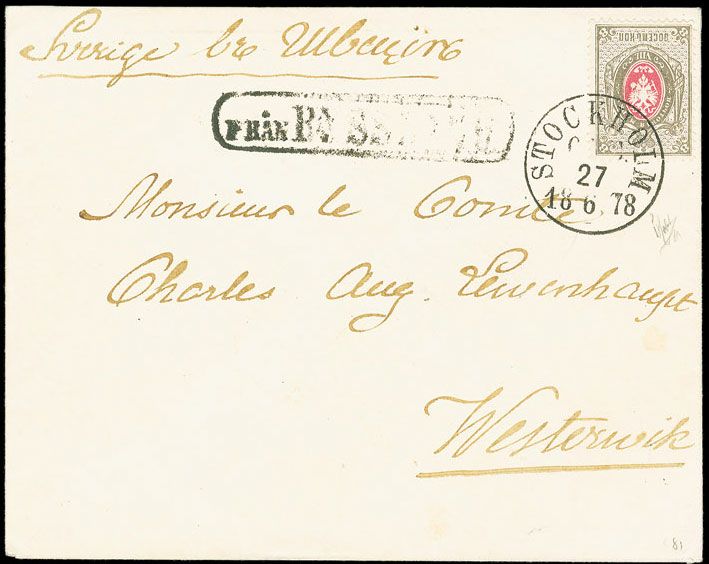 Sverige въ Швецiю
FRÅN RYSSLAND
ВОСЕМЬ КОП.
STOCKHOLM
27
18 6 78
Monsieur le Comte
Charles Aug. Lewenhaupt
Westerwik
81